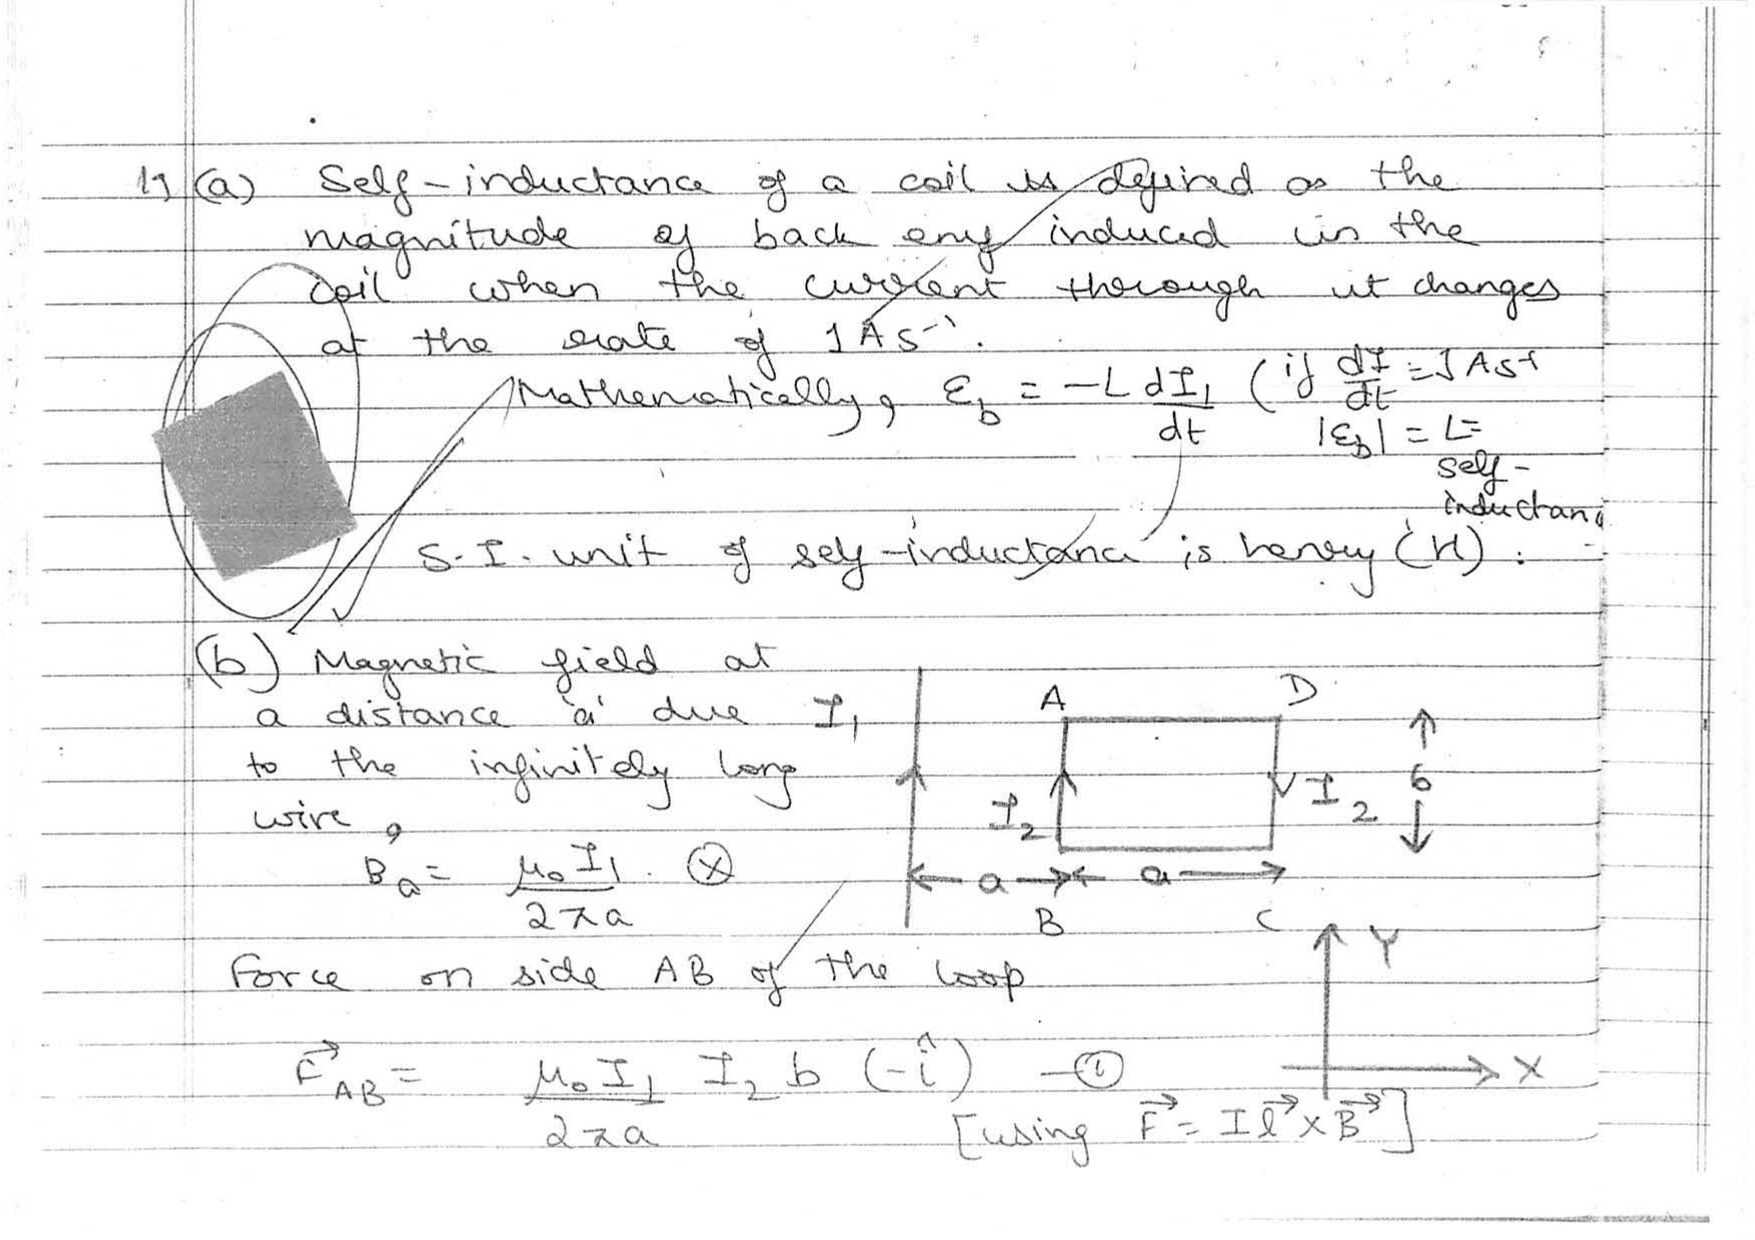 19 (a) Self-inductance of a coil is defined as the
magnitude of back emf induced in the
coil when the current through it changes
at the rate of 1 A s⁻¹.
Mathematically, ε_b = -L dI₁/dt (if dI/dt = 1 A s⁻¹
|ε_b| = L =
self-
inductanc
S.I. unit of self-inductance is henry (H).
(b) Magnetic field at
a distance 'a' due
to the infinitely long
wire,
B_a = μ₀I₁/2πa ⊗
I₁
A D
I₂ I₂ b
a a
B C
Force on side AB of the loop
Y
X
F⃗_AB = μ₀I₁/2πa I₂ b (-î) —①
[using F⃗ = I l⃗ × B⃗]